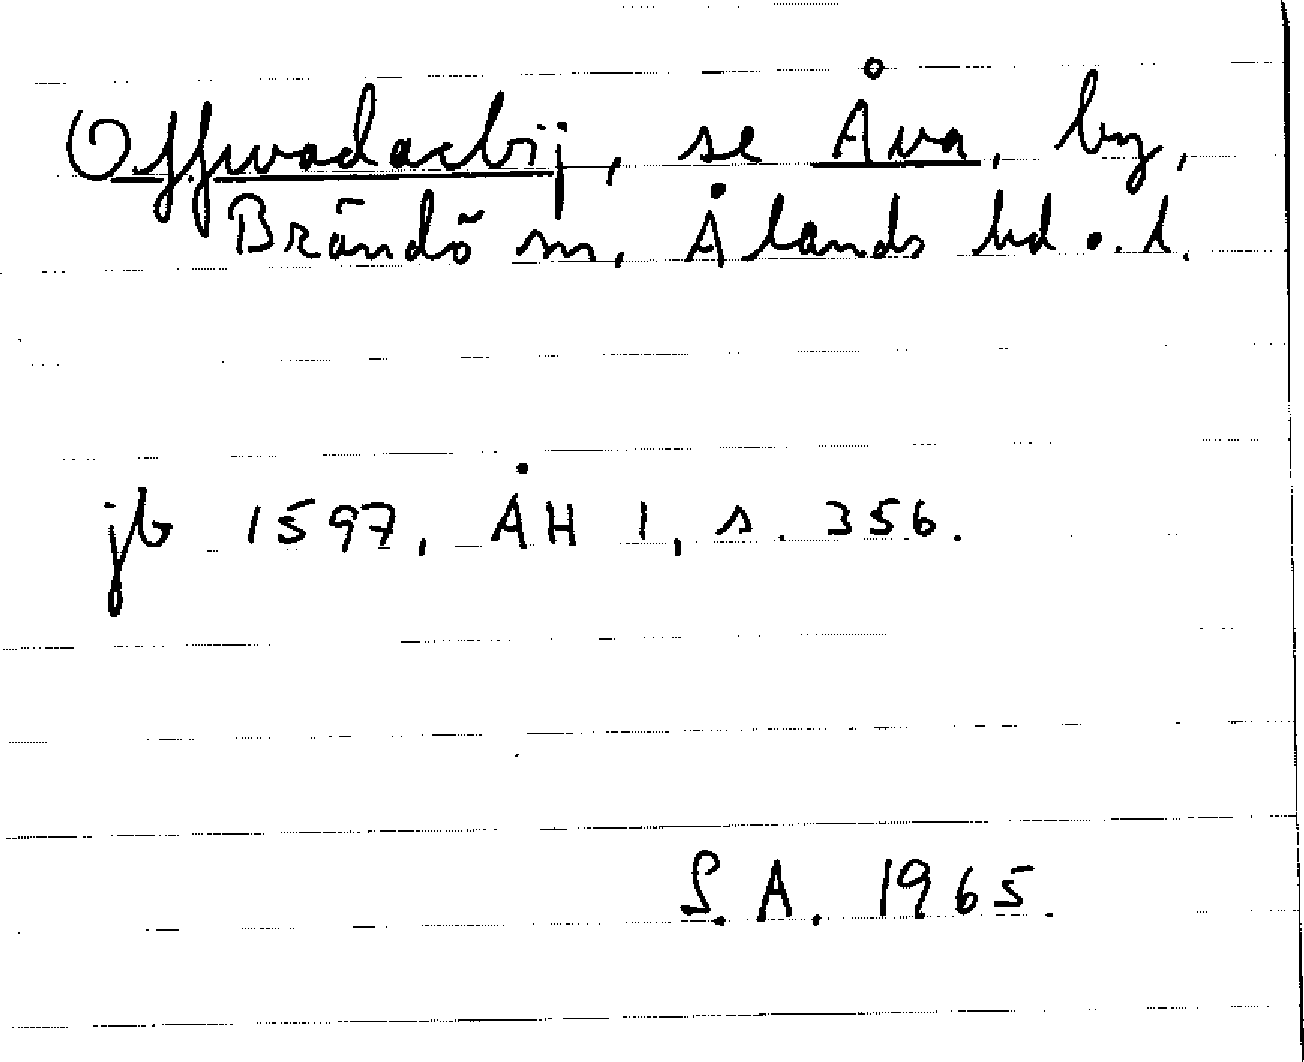 Offwadaebÿ, se Åva, by,
Brändö sn, Ålands hd o. l.
jb 1597, ÅH 1, s. 356.
S. A. 1965.